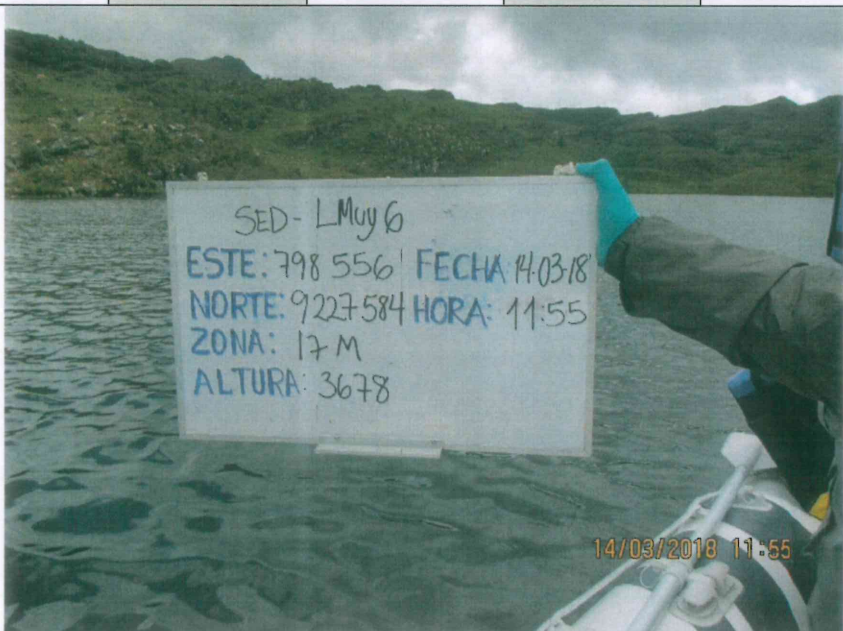 SED - LMuy6
ESTE: 798 556 FECHA 14.03.18
NORTE: 9227584 HORA: 11:55
ZONA: 17 M
ALTURA: 3678
14/03/2018 11:55